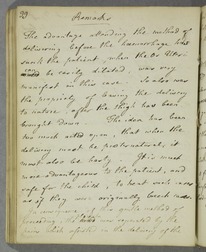 29
Remarks
The advantage attending the method of
delivering before the haemorrhage had
sunk the patient, when the Os Uteri
to be easily dilated, was very
manifest in this case. So also was
the propriety of leaving the delivery
to nature, after the thigh has been
brought down. The idea has been
too much acted upon, that when the
delivery must be preternatural, it
must also be hasty. It is much
more advantageous to the patient, and
safe for the child, to treat such cases
as if they were originally breech cases.
of the gentle method of
proceeding was regretted by the
in the delivery of the